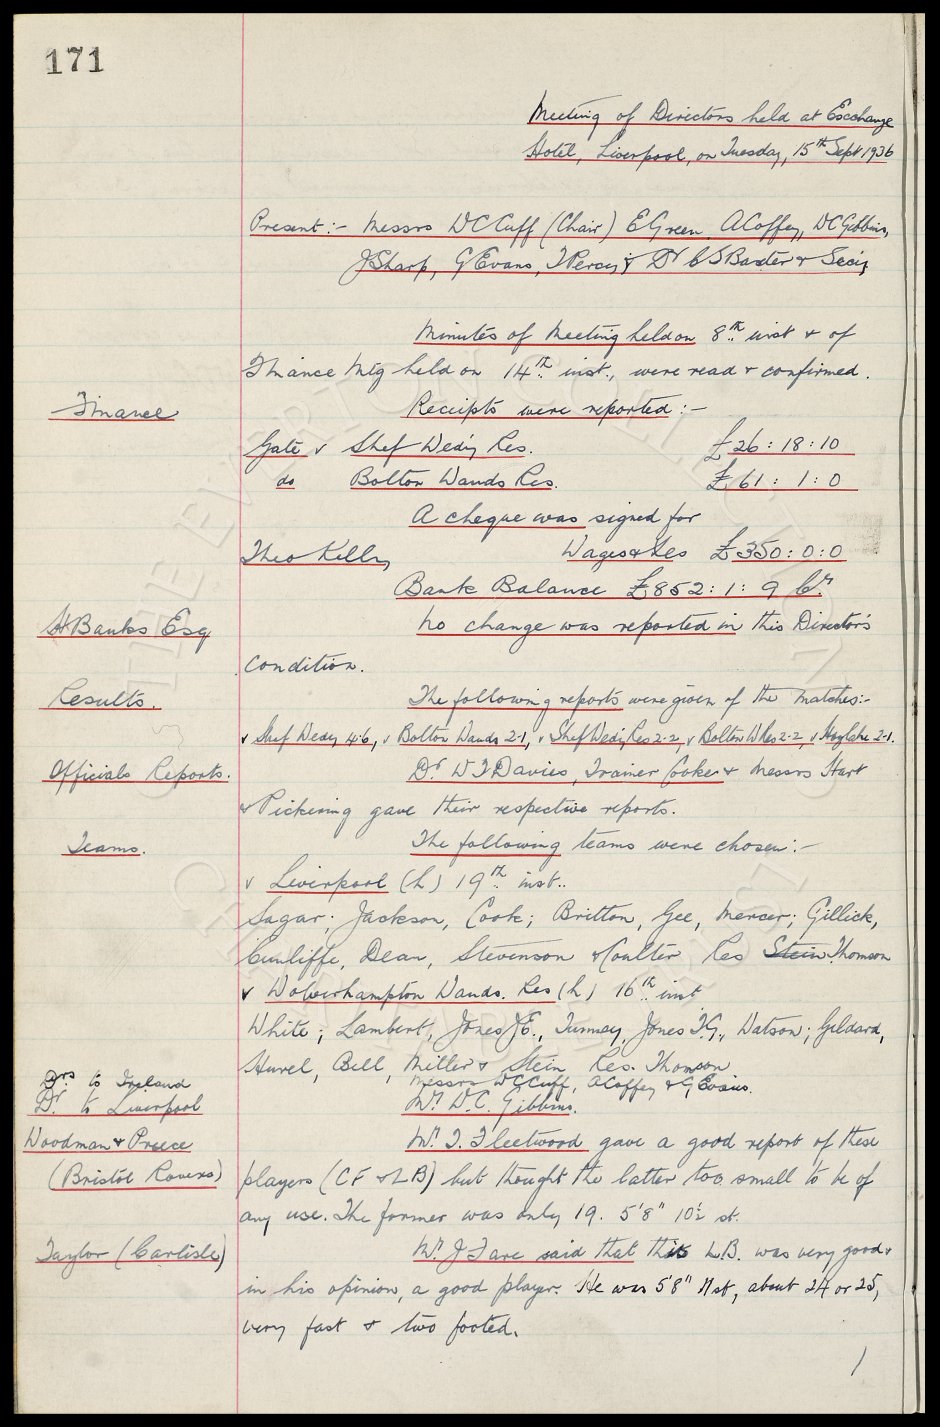 171
Meeting of Directors held at Exchange
Hotel, Liverpool, on Tuesday, 15th Sept 1936
Present:- Messrs W C Cuff (Chair) E Green, A Coffey, D C Gibbins,
J Sharp, G Evans, T Percy & Dr C S Baxter & Secy
Minutes of Meeting held on 8th inst & of
Finance Mtg held on 14th inst., were read & confirmed.
Finance
Receipts were reported:-
Gate v Shef Wedy Res. £26:18:10
do Bolton Wands Res. £61: 1: 0
A cheque was signed for
Theo Kelly Wages &c £350:0:0
Bank Balance £852: 1: 9 Cr
H Banks Esq
No change was reported in this Director's
condition.
Results.
The following reports were given of the matches:-
v Shef Wedy 4-6, v Bolton Wands 2-1, v Shef Wedy Res 2-2, v Bolton W Res 2-2, v Hoylake 2-1.
Officials Reports.
Dr W T Davies, Trainer Cooke & Messrs Hart
& Pickering gave their respective reports.
Teams.
The following teams were chosen:-
v Liverpool (h) 19th inst..
Sagar; Jackson, Cook; Britton, Gee, Mercer; Gillick,
Cunliffe, Dean, Stevenson & Coulter Res Stein Thomson
v Wolverhampton Wands. Res (h) 16th inst
White; Lambert, Jones J.E., Tunney, Jones T.G., Watson; Geldard,
Hurel, Bell, Miller & Stein Res. Thomson
Drs to Ireland Messrs W C Cuff, A Coffey & G Evans.
Dr to Liverpool Mr D.C. Gibbins.
Woodman & Preece
(Bristol Rovers)
Mr T. Fleetwood gave a good report of these
players (CF & LB) but thought the latter too small to be of
any use. The former was only 19. 5'8" 10½ st.
Taylor (Carlisle)
Mr J Fare said that this L.B. was very good &
in his opinion, a good player. He was 5'8" 11 st, about 24 or 25,
very fast & two footed.